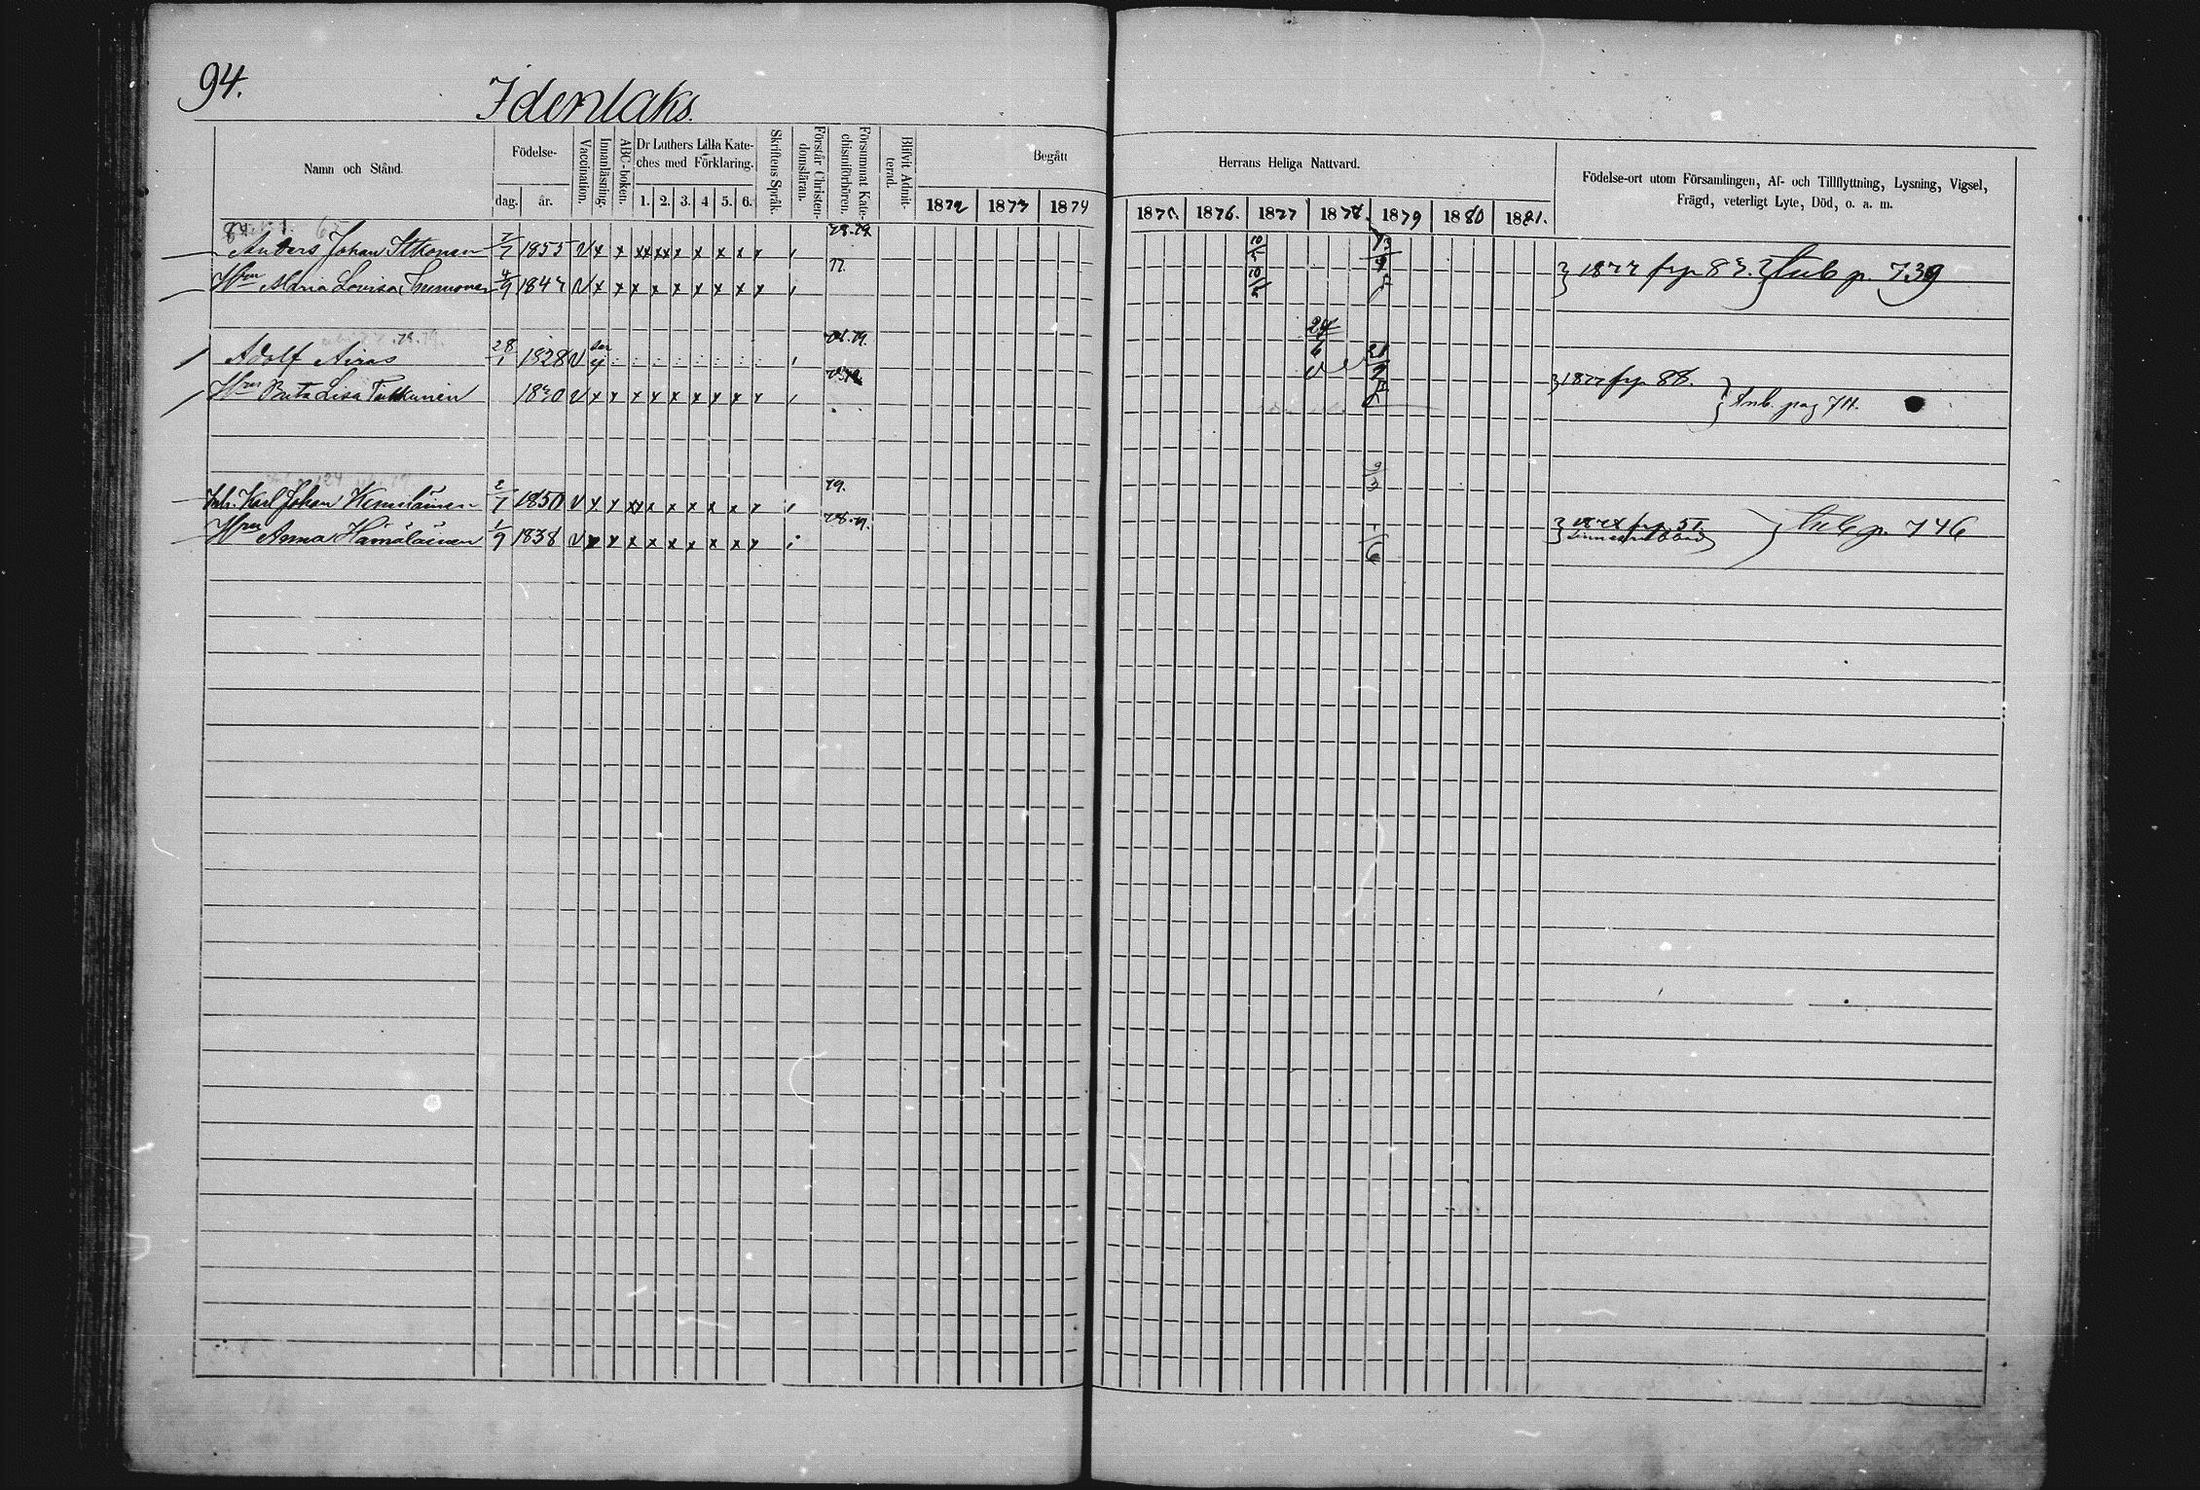 94.
Idenlaks.
Namn och Stånd.
Födelse-
dag.
år.
Vaccination.
Innanläsning.
ABC-boken.
Dr Luthers Lilla Kate-
ches med Förklaring.
1. 2. 3. 4 5. 6.
Skriftens Språk.
Förstår Christen-
domsläran.
Försummat Kate-
chismiförhören.
Blifvit Admit-
terad.
Begått
1872 1873 1874
Herrans Heliga Nattvard.
1875. 1876. 1877 1878. 1879 1880 1881.
Födelse-ort utom Församlingen, Af- och Tillflyttning, Lysning, Vigsel,
Frägd, veterligt Lyte, Död, o. a. m.
Anders Johan Itkonen 7/7 1855 v x x xx xx x x x x 78.79. 10/5
Hm Maria Lovisa 4/9 1847 v x x x x x x x x x 77. 10/5 1877 frp 87. p. 739
Adolf Airas 28/1 1828 v 78.79. 24/6 21/9
Hm Brita Lisa 1830 v x x x x x x x x x 1877 frp 88. pag 711.
Karl Johan 2/7 1850 v x x xx x x x x x 79. 9/3
Hm Anna Hämäläinen 1/9 1838 v x x x x x x x x x 78.79. 1/6 frp 51 p. 746